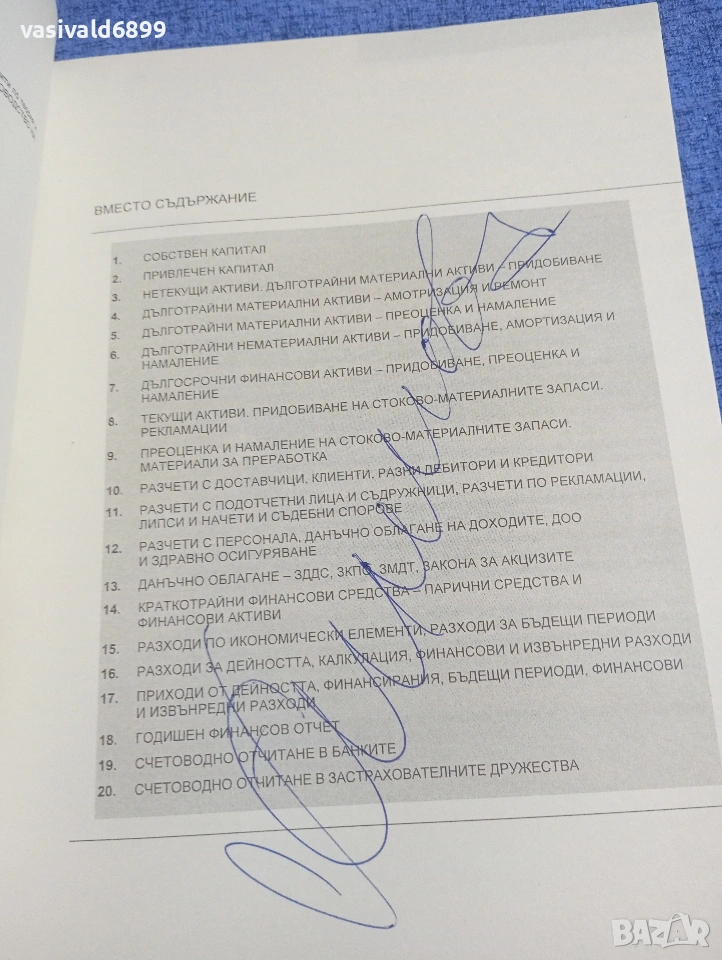 vasivald6899
ВМЕСТО СЪДЪРЖАНИЕ
1. СОБСТВЕН КАПИТАЛ
2. ПРИВЛЕЧЕН КАПИТАЛ
3. НЕТЕКУЩИ АКТИВИ. ДЪЛГОТРАЙНИ МАТЕРИАЛНИ АКТИВИ – ПРИДОБИВАНЕ
4. ДЪЛГОТРАЙНИ МАТЕРИАЛНИ АКТИВИ – АМОТРИЗАЦИЯ И РЕМОНТ
5. ДЪЛГОТРАЙНИ МАТЕРИАЛНИ АКТИВИ – ПРЕОЦЕНКА И НАМАЛЕНИЕ
6. ДЪЛГОТРАЙНИ НЕМАТЕРИАЛНИ АКТИВИ – ПРИДОБИВАНЕ, АМОРТИЗАЦИЯ И
НАМАЛЕНИЕ
7. ДЪЛГОСРОЧНИ ФИНАНСОВИ АКТИВИ – ПРИДОБИВАНЕ, ПРЕОЦЕНКА И
НАМАЛЕНИЕ
8. ТЕКУЩИ АКТИВИ. ПРИДОБИВАНЕ НА СТОКОВО-МАТЕРИАЛНИТЕ ЗАПАСИ.
РЕКЛАМАЦИИ
9. ПРЕОЦЕНКА И НАМАЛЕНИЕ НА СТОКОВО-МАТЕРИАЛНИТЕ ЗАПАСИ.
МАТЕРИАЛИ ЗА ПРЕРАБОТКА
10. РАЗЧЕТИ С ДОСТАВЧИЦИ, КЛИЕНТИ, РАЗНИ ДЕБИТОРИ И КРЕДИТОРИ
11. РАЗЧЕТИ С ПОДОТЧЕТНИ ЛИЦА И СЪДРУЖНИЦИ, РАЗЧЕТИ ПО РЕКЛАМАЦИИ,
ЛИПСИ И НАЧЕТИ И СЪДЕБНИ СПОРОВЕ
12. РАЗЧЕТИ С ПЕРСОНАЛА, ДАНЪЧНО ОБЛАГАНЕ НА ДОХОДИТЕ, ДОО
И ЗДРАВНО ОСИГУРЯВАНЕ
13. ДАНЪЧНО ОБЛАГАНЕ – ЗДДС, ЗКПО, ЗМДТ, ЗАКОНА ЗА АКЦИЗИТЕ
14. КРАТКОТРАЙНИ ФИНАНСОВИ СРЕДСТВА – ПАРИЧНИ СРЕДСТВА И
ФИНАНСОВИ АКТИВИ
15. РАЗХОДИ ПО ИКОНОМИЧЕСКИ ЕЛЕМЕНТИ, РАЗХОДИ ЗА БЪДЕЩИ ПЕРИОДИ
16. РАЗХОДИ ЗА ДЕЙНОСТТА, КАЛКУЛАЦИЯ, ФИНАНСОВИ И ИЗВЪНРЕДНИ РАЗХОДИ
17. ПРИХОДИ ОТ ДЕЙНОСТТА, ФИНАНСИРАНИЯ, БЪДЕЩИ ПЕРИОДИ, ФИНАНСОВИ
И ИЗВЪНРЕДНИ РАЗХОДИ
18. ГОДИШЕН ФИНАНСОВ ОТЧЕТ
19. СЧЕТОВОДНО ОТЧИТАНЕ В БАНКИТЕ
20. СЧЕТОВОДНО ОТЧИТАНЕ В ЗАСТРАХОВАТЕЛНИТЕ ДРУЖЕСТВА
BAZAR